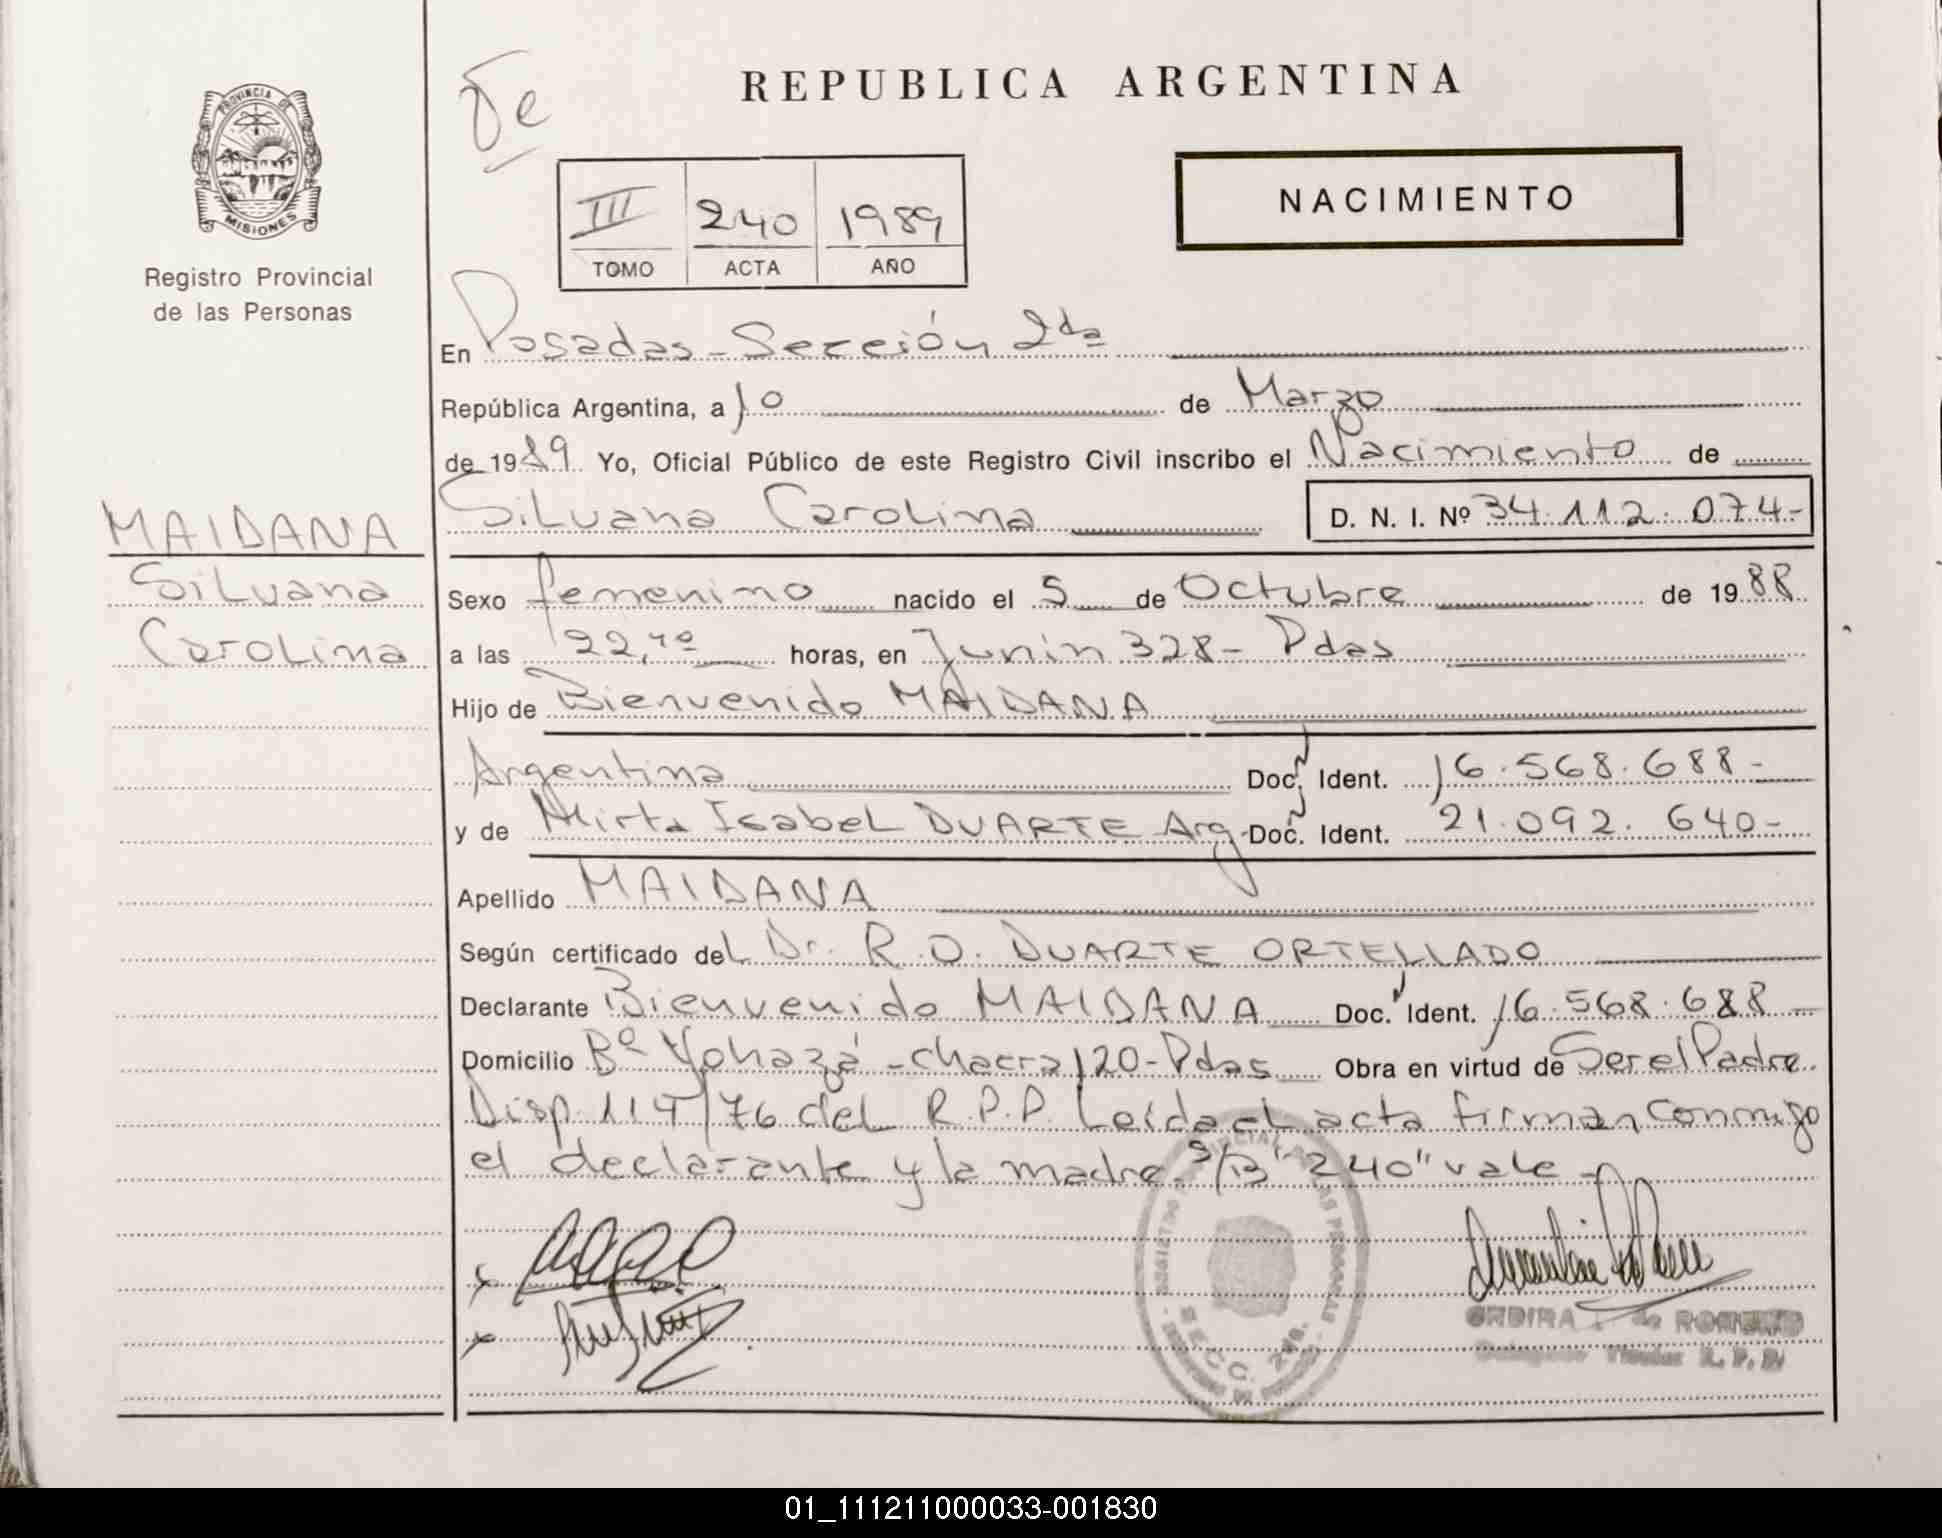 PROVINCIA DE
MISIONES
Registro Provincial
de las Personas
REPUBLICA ARGENTINA
NACIMIENTO
III 240 1989
TOMO ACTA AÑO
En Posadas - Sección 2da
República Argentina, a 10 de Marzo
de 1989 Yo, Oficial Público de este Registro Civil inscribo el Nacimiento de
Silvana Carolina D. N. I. Nº 34.112.074-
MAIDANA
Silvana
Carolina
Sexo femenino nacido el 5 de Octubre de 1988
a las 22,10 horas, en Junín 328 - Pdas
Hijo de Bienvenido MAIDANA
Argentina Doc. Ident. 16.568.688-
y de Mirta Isabel DUARTE Arg. Doc. Ident. 21.092.640-
Apellido MAIDANA
Según certificado del Dr. R.O. DUARTE ORTELLADO
Declarante Bienvenido MAIDANA Doc. Ident. 16.568.688-
Domicilio Bº Yohazá - chacra 120 - Pdas Obra en virtud de Ser el Padre
Disp. 114/76 del R.P.P. Leída el acta firman conmigo
el declarante y la madre S/B "240" vale -
SECC. 2da.
de
01_111211000033-001830